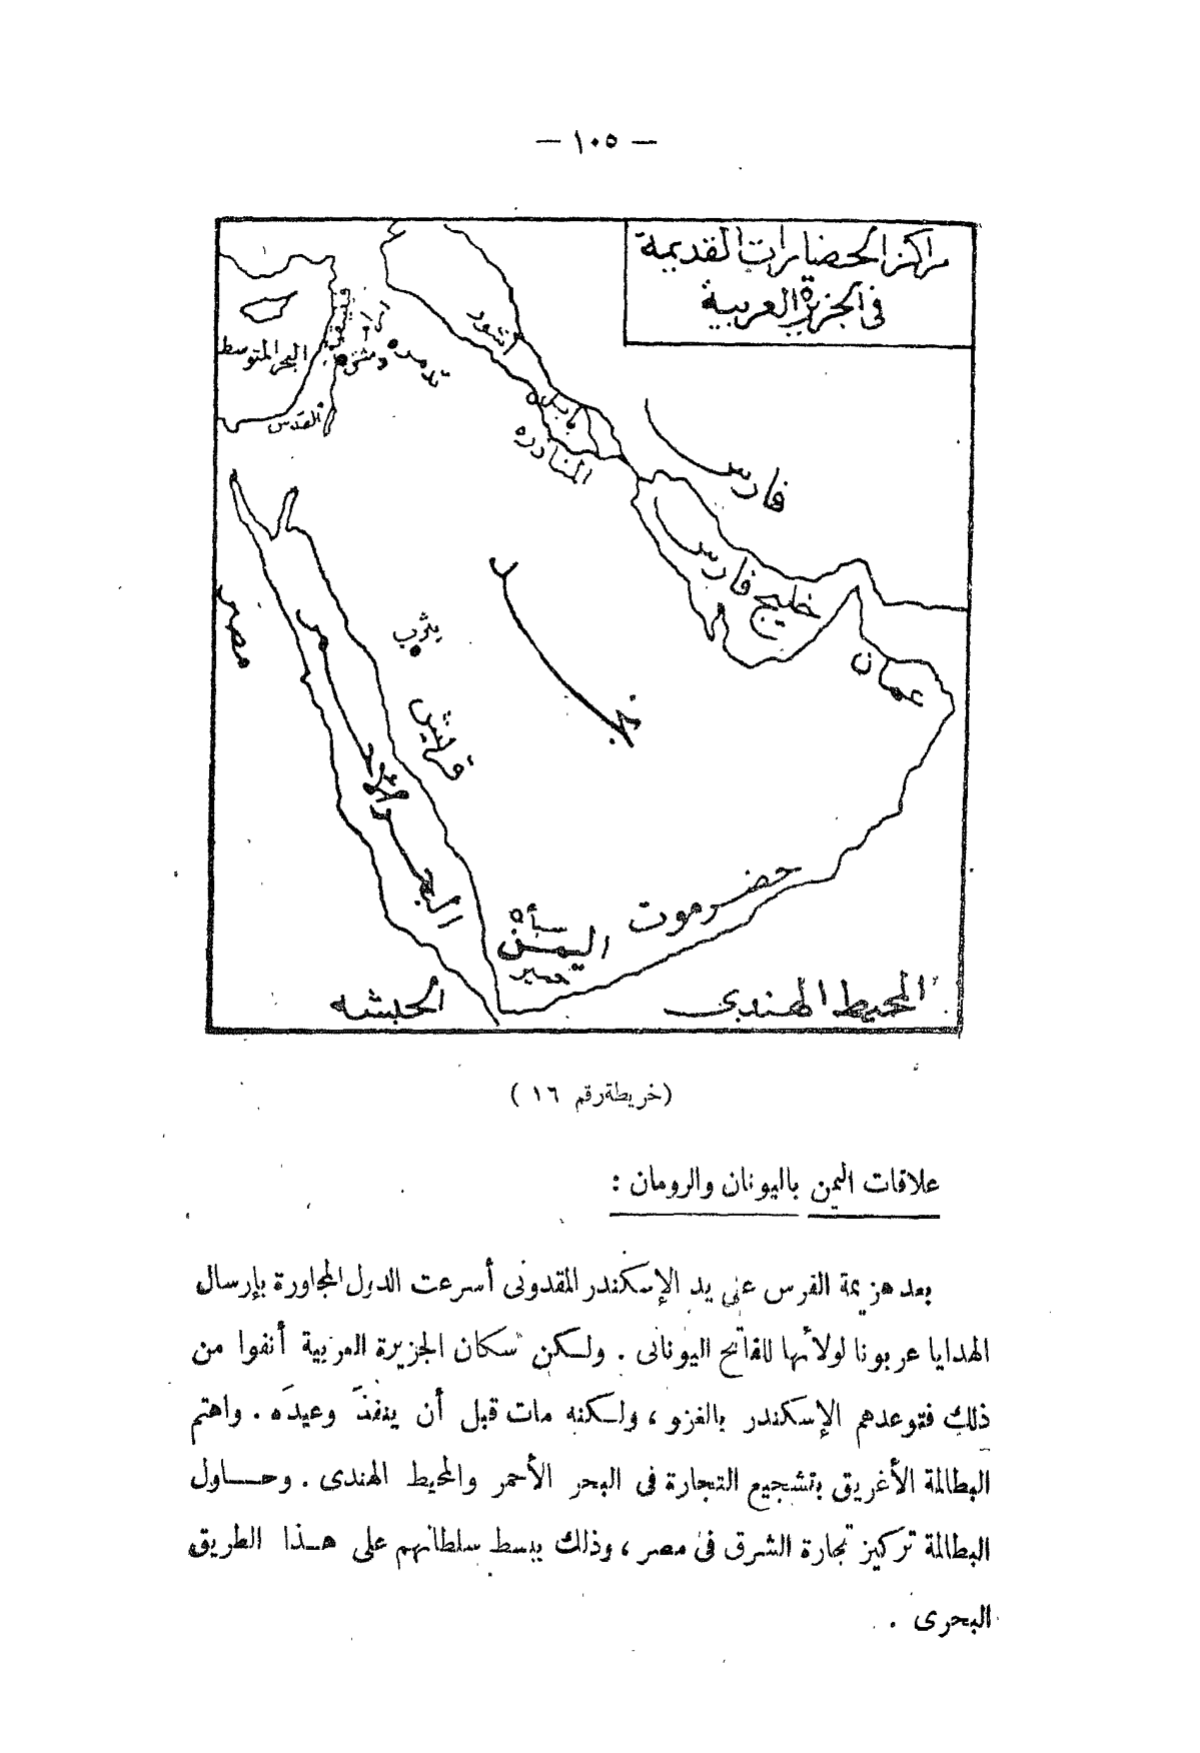 — ١٠٥ —
مراكز الحضارات القديمة
فى الجزيرة العربية
البحر المتوسط
فينيقية
دمشق
تدمر
القدس
آشور
بابل
المناذره
فارس
خليج فارس
عمان
مصر
يثرب
قريش
نجد
البحر الأحمر
حضرموت
سبأ
اليمن
حمير
الحبشه
المحيط الهندى
(خريطة رقم ١٦ )
علاقات اليمن باليونان والرومان :
بعد هزيمة الفرس على يد الإسكندر المقدونى أسرعت الدول المجاورة بإرسال
الهدايا عربونا لولائها للفاتح اليونانى . ولكن سكان الجزيرة العربية أنفوا من
ذلك فتوعدهم الإسكندر بالغزو ، ولكنه مات قبل أن ينفذ وعيده . واهتم
البطالمة الأغريق بتشجيع التجارة فى البحر الأحمر والمحيط الهندى . وحاول
البطالمة تركيز تجارة الشرق فى مصر ، وذلك ببسط سلطانهم على هذا الطريق
البحرى .